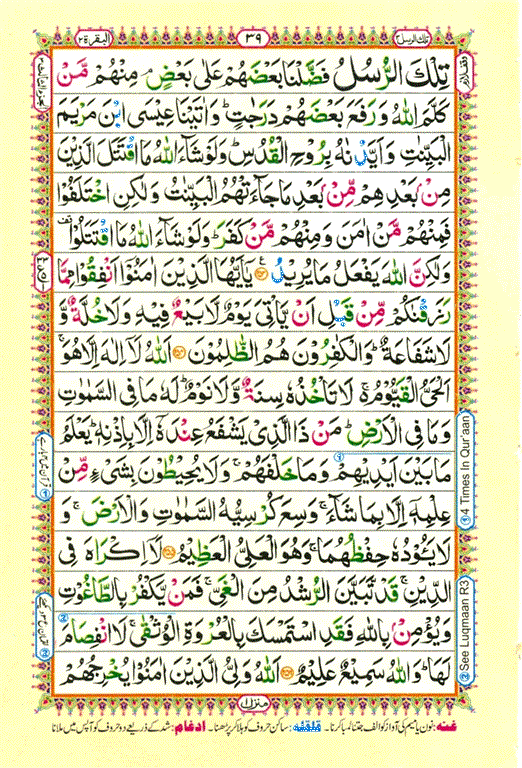 تلك الرسل ٣
٣٩
البقرة ٢
تِلْكَ الرُّسُلُ فَضَّلْنَا بَعْضَهُمْ عَلٰى بَعْضٍ ۘ مِنْهُمْ مَّنْ
كَلَّمَ اللّٰهُ وَرَفَعَ بَعْضَهُمْ دَرَجٰتٍ ؕ وَاٰتَيْنَا عِيْسَى ابْنَ مَرْيَمَ
الْبَيِّنٰتِ وَاَيَّدْنٰهُ بِرُوْحِ الْقُدُسِ ؕ وَلَوْ شَآءَ اللّٰهُ مَا اقْتَتَلَ الَّذِيْنَ
مِنْۢ بَعْدِهِمْ مِّنْۢ بَعْدِ مَا جَآءَتْهُمُ الْبَيِّنٰتُ وَلٰكِنِ اخْتَلَفُوْا
فَمِنْهُمْ مَّنْ اٰمَنَ وَمِنْهُمْ مَّنْ كَفَرَ ؕ وَلَوْ شَآءَ اللّٰهُ مَا اقْتَتَلُوْا ۟
وَلٰكِنَّ اللّٰهَ يَفْعَلُ مَا يُرِيْدُ ﴿٢٥٣﴾ يٰۤاَيُّهَا الَّذِيْنَ اٰمَنُوْۤا اَنْفِقُوْا مِمَّا
رَزَقْنٰكُمْ مِّنْ قَبْلِ اَنْ يَّاْتِيَ يَوْمٌ لَّا بَيْعٌ فِيْهِ وَلَا خُلَّةٌ وَّ
لَا شَفَاعَةٌ ؕ وَالْكٰفِرُوْنَ هُمُ الظّٰلِمُوْنَ ﴿٢٥٤﴾ اَللّٰهُ لَاۤ اِلٰهَ اِلَّا هُوَ ۚ
اَلْحَيُّ الْقَيُّوْمُ ۚ لَا تَاْخُذُهٗ سِنَةٌ وَّلَا نَوْمٌ ؕ لَهٗ مَا فِي السَّمٰوٰتِ
وَمَا فِي الْاَرْضِ ؕ مَنْ ذَا الَّذِيْ يَشْفَعُ عِنْدَهٗۤ اِلَّا بِاِذْنِهٖ ؕ يَعْلَمُ
مَا بَيْنَ اَيْدِيْهِمْ وَمَا خَلْفَهُمْ ۚ وَلَا يُحِيْطُوْنَ بِشَيْءٍ مِّنْ
عِلْمِهٖۤ اِلَّا بِمَا شَآءَ ۚ وَسِعَ كُرْسِيُّهُ السَّمٰوٰتِ وَالْاَرْضَ ۚ وَ
لَا يَـُٔوْدُهٗ حِفْظُهُمَا ۚ وَهُوَ الْعَلِيُّ الْعَظِيْمُ ﴿٢٥٥﴾ لَاۤ اِكْرَاهَ فِي
الدِّيْنِ ۙ قَدْ تَّبَيَّنَ الرُّشْدُ مِنَ الْغَيِّ ۚ فَمَنْ يَّكْفُرْ بِالطَّاغُوْتِ
وَيُؤْمِنْۢ بِاللّٰهِ فَقَدِ اسْتَمْسَكَ بِالْعُرْوَةِ الْوُثْقٰى ۚ لَا انْفِصَامَ
لَهَا ؕ وَاللّٰهُ سَمِيْعٌ عَلِيْمٌ ﴿٢٥٦﴾ اَللّٰهُ وَلِيُّ الَّذِيْنَ اٰمَنُوْا يُخْرِجُهُمْ
① 4 Times In Qur'aan
② See Luqmaan R3
منزل ١
غنه: نون یا میم کی آواز کو الف جتنا لمبا کرنا۔ قلقله: ساکن حروف کو ہلا کر پڑھنا۔ ادغام: شد کے ذریعے دو حروف کو آپس میں ملانا